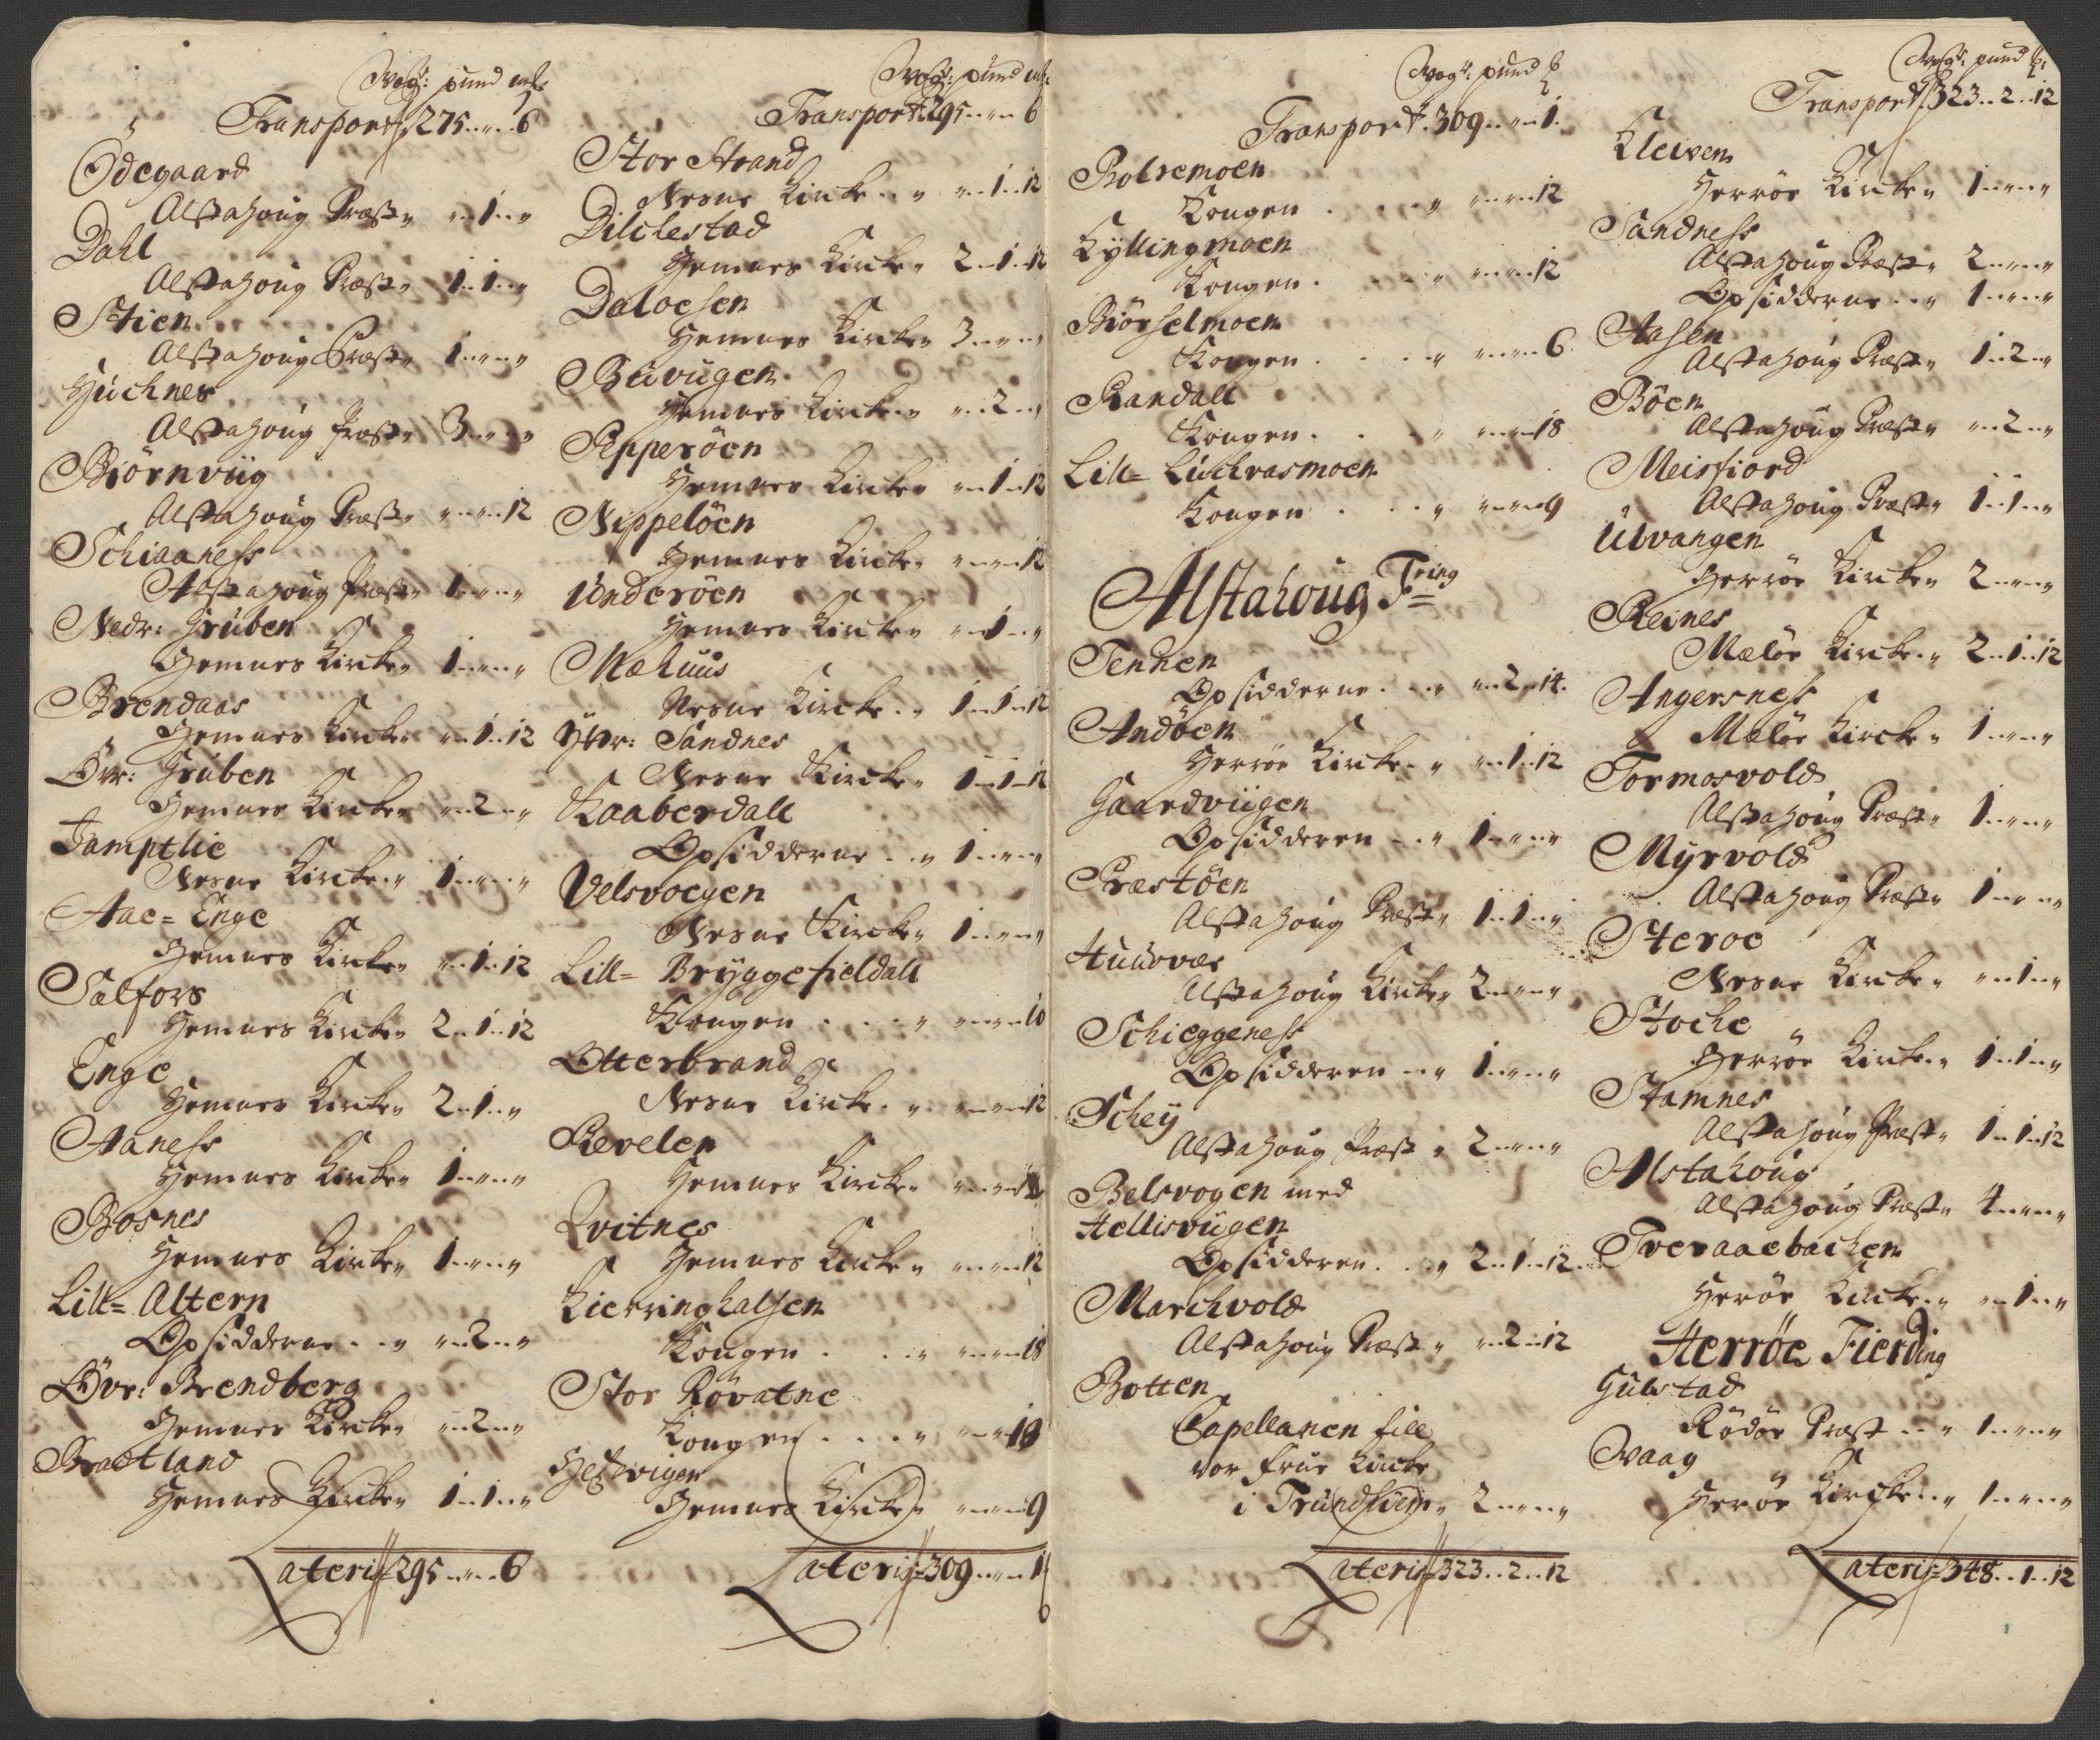 Wog: pund mk
Transport 275 .. " .. 6
Ödegaard
Alstahoug Præst " " .. 1 .. "
Dahl
Alstahoug Præst " 1 .. 1 .. "
Stien
Alstahoug Præst " 1 .. " .. "
Huchnes
Alstahoug Præst " 3 .. " .. "
Biörnviig
Alstahoug Præst " " .. " .. 12
Schiaaness
Alstahoug Præst " 1 .. " .. "
Nedr: Gruben
Hemnes Kircke " 1 .. " .. "
Brendaas
Hemnes Kircke " " .. 1 .. 12
Övr: Gruben
Hemnes Kircke " " .. 2 .. "
Jamptlie
Nesne Kircke " 1 .. " .. "
Aae = Enge
Hemnes Kircke " " .. 1 .. 12
Salfors
Hemnes Kircke " 2 .. 1 .. 12
Enge
Hemnes Kircke " 2 .. 1 .. "
Aaness
Hemnes Kircke " 1 .. " .. "
Bosnes
Hemnes Kircke " 1 .. " .. "
Lill = Altern
Opsidderne .. " " .. 2 .. "
Övr: Brendberg
Hemnes Kircke " " .. 2 .. "
Bradtland
Hemnes Kircke " 1 .. 1 .. "
Lateris 295 .. " .. 6
Wog: pund mk
Transport 295 .. " .. 6
Stor Strand
Nesne Kircke .. " " .. 1 .. 12
Dilchestad
Hemnes Kircke " 2 .. 1 .. 12
Daloesen
Hemnes Kircke " 3 .. " .. "
Buvugen
Hemnes Kircke " " .. 2 .. "
Pepperöen
Hemnes Kircke " " .. 1 .. 12
Nippelöen
Hemnes Kircke " " .. " .. 12
Underöen
Hemnes Kircke " " .. 1 .. "
Mæhuus
Nesne Kircke .. " 1 .. 1 .. 12
Yttr: Sandnes
Nesne Kircke " 1 .. 1 .. 12
Kaaberdall
Opsidderne .. " 1 .. " .. "
Velsvoegen
Nesne Kircke " 1 .. " .. "
Lill = Bryggefieldall
Kongen .. .. " " .. " .. 10
Otterbrand
Nesne Kircke . " " .. " .. 12
Revelen
Hemnes Kircke "
Qvitnes
Hemnes Kircke " " .. " .. 12
Kierringhalsen
Kongen . .. " " .. " .. 18
Stor Rövatne
Kongen . .. " " .. " .. 18
Hestvigen
Hemnes Kircke " " .. " .. 9
Lateris 309 .. " .. 1
Wog: pund
Transport 309 .. " .. 1
Bolremoen
Kongen . .. " " .. " .. 12
Kyllingmoen
Kongen . .. " " .. " .. 12
Biörselmoen
Kongen . .. " " .. " .. 6
Randall
Kongen . .. " " .. " .. 18
Lill = Luchrasmoen
Kongen . .. " " .. " .. 9
Alstahoug Fring
Tennen
Opsidderne . .. " " .. 2 .. 14
Andöen
Herröe Kircke . " " .. 1 .. 12
Gaardviigen
Opsidderen .. " 1 .. " .. "
Præstöen
Alstahoug Præst " 1 .. 1 .. "
Huusvær
Alstahoug Kircke " 2 .. " .. "
Schieggeness
Opsidderen .. " 1 .. " .. "
Schey
Alstahoug Præst " 2 .. " .. "
Belsvogen med
Hellisviigen
Opsidderen . .. " 2 .. 1 .. 12
Marchvold
Alstahoug Præst " " .. 2 .. 12
Botten
Capellanen till
vor Frue Kircke
i Trundhiem " 2 .. " .. "
Lateris 323 .. 2 .. 12
Wog: pund
Transport 323 .. 2 .. 12
Kleiven
Herröe Kircke " 1 .. " .. "
Sandness
Alstahoug Præst " 2 .. " .. "
Opsidderne .. " 1 .. " .. "
Aasen
Alstahoug Præst " 1 .. 2 .. "
Böen
Alstahoug Præst " " .. 2 .. "
Meisfiord
Alstahoug Præst " 1 .. 1 .. "
Ulvangen
Herröe Kircke " 2 .. " .. "
Reines
Mælöe Kircke .. " 2 .. 1 .. 12
Angersness
Mælöe Kircke " 1 .. " .. "
Tormosvold
Alstahoug Præst " 1 .. " .. "
Myrvold
Alstahoug Præst " 1 .. " .. "
Steroe
Nesne Kircke . " " .. 1 .. "
Stoche
Herröe Kircke . " 1 .. 1 .. "
Stamnes
Alstahoug Præst " 1 .. 1 .. 12
Alstahoug
Alstahoug Præst " 4 .. " .. "
Tveraaebachen
Heröe Kircke . " " .. 1 .. "
Herröe Fierding
Gulstad
Rödöe Præst .. " 1 .. " .. "
Waag
Heröe Kircke .. " 1 .. " .. "
Lateris 348 .. 1 .. 12